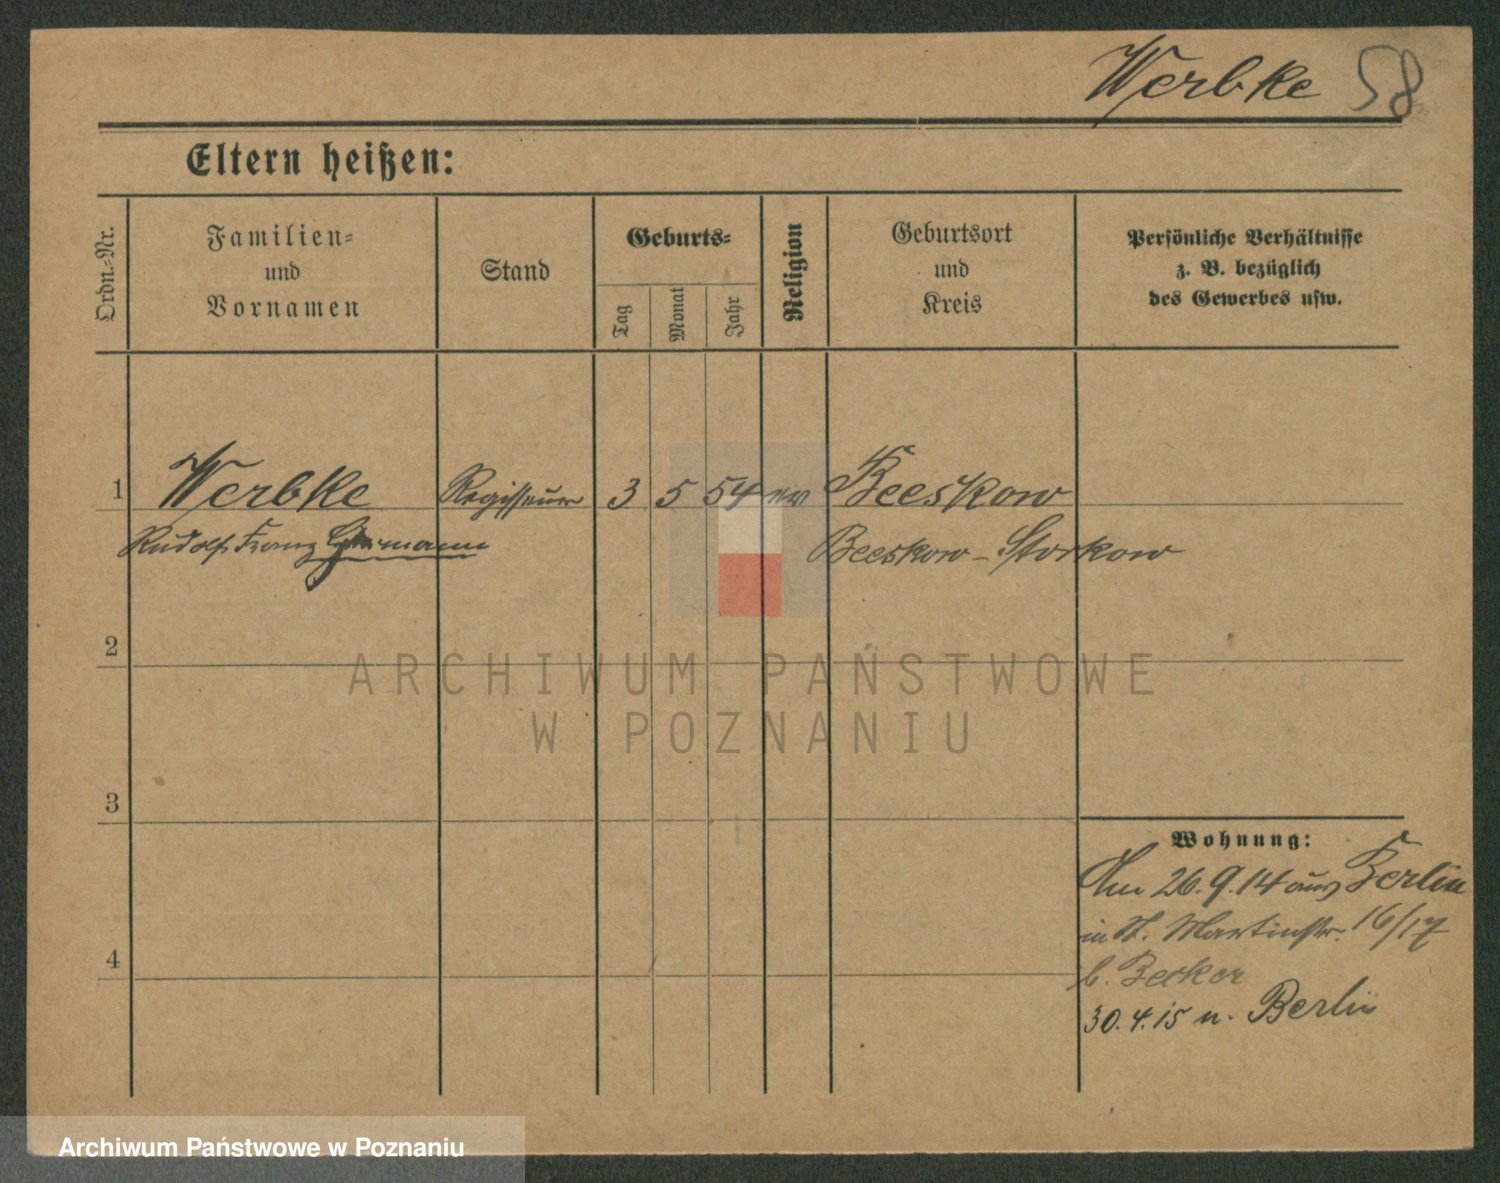 Werbke 58
Eltern heißen:
Ordn.-Nr.
Familien-
und
Vornamen
Stand
Geburts-
Tag
Monat
Jahr
Religion
Geburtsort
und
Kreis
Persönliche Verhältnisse
z. B. bezüglich
des Gewerbes usw.
1 Werbke Regisseur 3 5 54 ev Beeskow
Rudolf Franz Beeskow-Storkow
2
ARCHIWUM PAŃSTWOWE
W POZNANIU
3
Wohnung:
Am 26.9.14 aus Berlin
in St. Martinstr. 16/17
4
b. Becker
30.4.15 n. Berlin
Archiwum Państwowe w Poznaniu